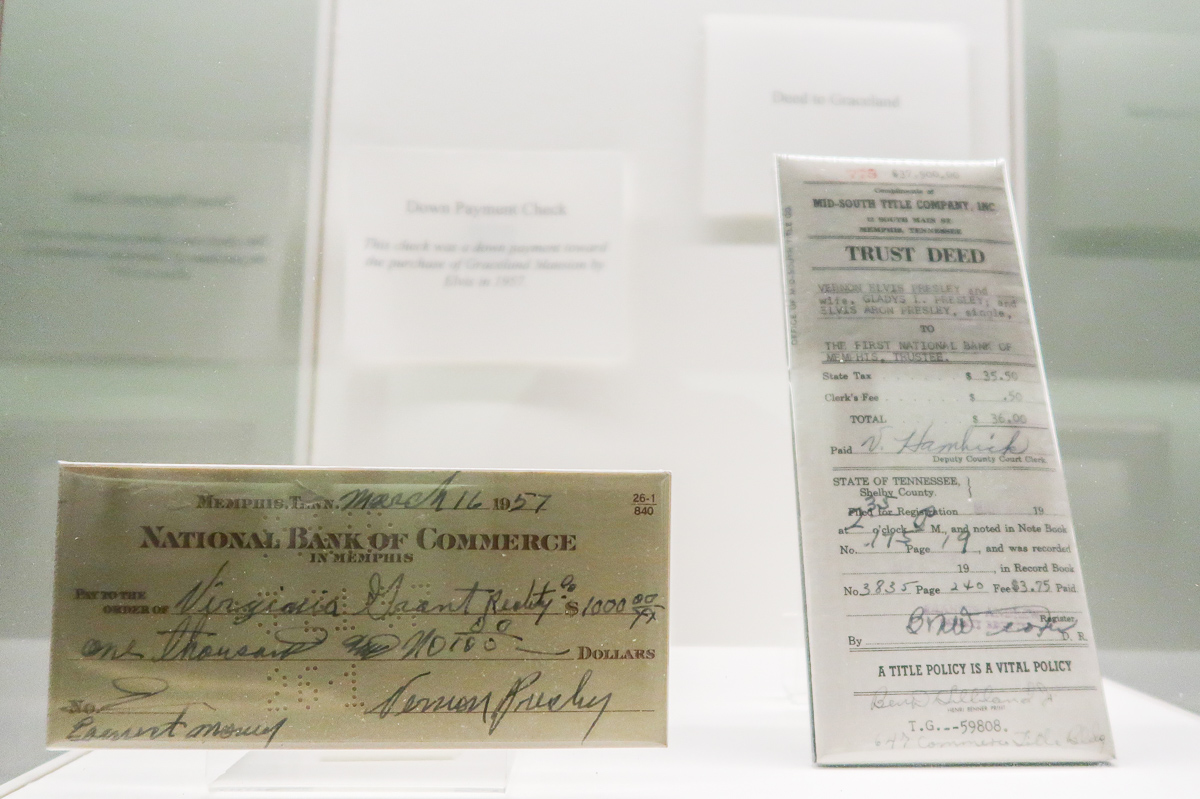 Down Payment Check
This check was a down payment toward
the purchase of Graceland Mansion by
Elvis in 1957
Deed to Graceland
MEMPHIS, TENN. March 16 1957
26-1
840
NATIONAL BANK OF COMMERCE
IN MEMPHIS
PAY TO THE
ORDER OF Virginia Grant Reality Co $1000 00/xx
one thousand and No/100 DOLLARS
No. Vernon Presley
Earnest money
775 $37,900.00
Compliments of
MID-SOUTH TITLE COMPANY, INC
12 SOUTH MAIN ST.
MEMPHIS, TENNESSEE
TRUST DEED
VERNON ELVIS PRESLEY and
wife, GLADYS L. PRESLEY, and
ELVIS ARON PRESLEY, single,
TO
THE FIRST NATIONAL BANK OF
MEMPHIS, TRUSTEE.
State Tax $ 35.50
Clerk's Fee $ .50
TOTAL $ 36.00
Paid V. Hambrick
Deputy County Court Clerk
STATE OF TENNESSEE,
Shelby County.
Filed for Registration 19
at 235 o'clock P M., and noted in Note Book
No. 115 Page 19, and was recorded
19, in Record Book
No 3835 Page 240 Fee $3.75 Paid
Register
By D. R.
A TITLE POLICY IS A VITAL POLICY
T.G.--59808.
647 Commerce Title Bldg